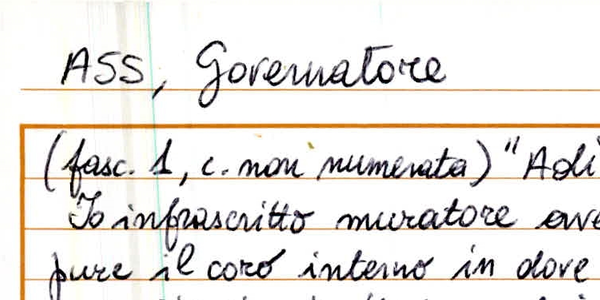 ASS, Governatore
(fasc. 1, c. non numerata) "Adi
Io infrascritto muratore ave
pure il coro interno in dove